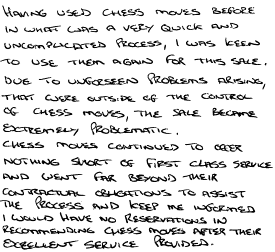 HAVING USED CHESS MOVES BEFORE
IN WHAT WAS A VERY QUICK AND
UNCOMPLICATED PROCESS, I WAS KEEN
TO USE THEM AGAIN FOR THIS SALE.
DUE TO UNFORSEEN PROBLEMS ARISING,
THAT WERE OUTSIDE OF THE CONTROL
OF CHESS MOVES, THE SALE BECAME
EXTREMELY PROBLEMATIC.
CHESS MOVES CONTINUED TO OFFER
NOTHING SHORT OF FIRST CLASS SERVICE
AND WENT FAR BEYOND THEIR
CONTRACTUAL OBLIGATIONS TO ASSIST
THE PROCESS AND KEEP ME INFORMED
I WOULD HAVE NO RESERVATIONS IN
RECOMMENDING CHESS MOVES AFTER THEIR
EXCELLENT SERVICE PROVIDED.